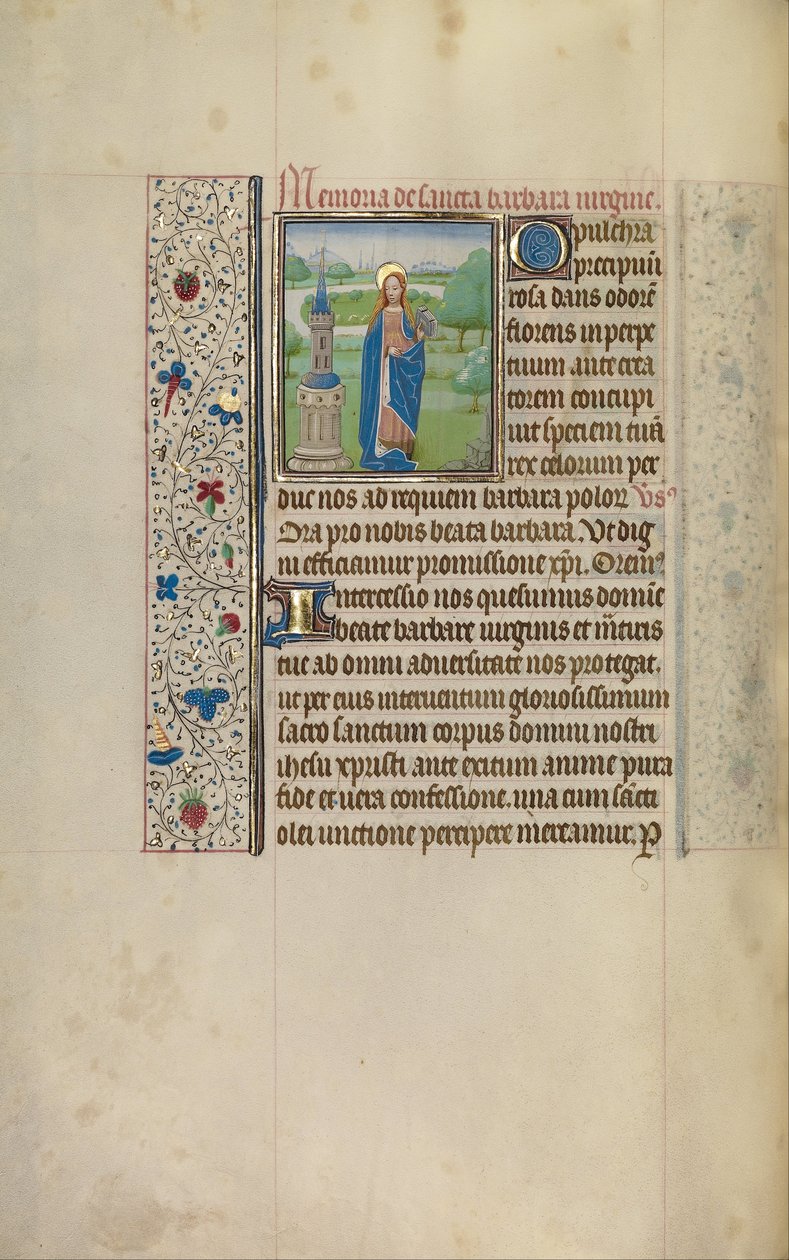 Memoria de sancta barbara uirgine.
O pulchra
precipuũ
rosa dans odorẽ
florens in perpe
tuum ante crea
torem concupi
uit speciem tuã
rex celorum per
duc nos ad requiem barbara polorꝝ v̄s
Ora pro nobis beata barbara. Vt dig
ni efficiamur promissione xp̃i. Orem⁹
Intercessio nos quesumus domĩe
beate barbare uirginis et m̃tiris
tue ab omni aduersitate nos protegat.
ut per eius interuentum gloriosissimum
sacro sanctum corpus domini nostri
ihesu xpristi ante exitum anime pura
fide et uera confessione. una cum sãcti
olei unctione percipere mereamur. P